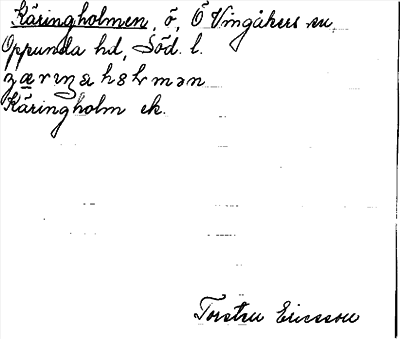 Käringholmen, ö, Ö Vingåkers sn,
Oppunda hd, Söd. l.
Käringholm ek.
Torsten Ericsson